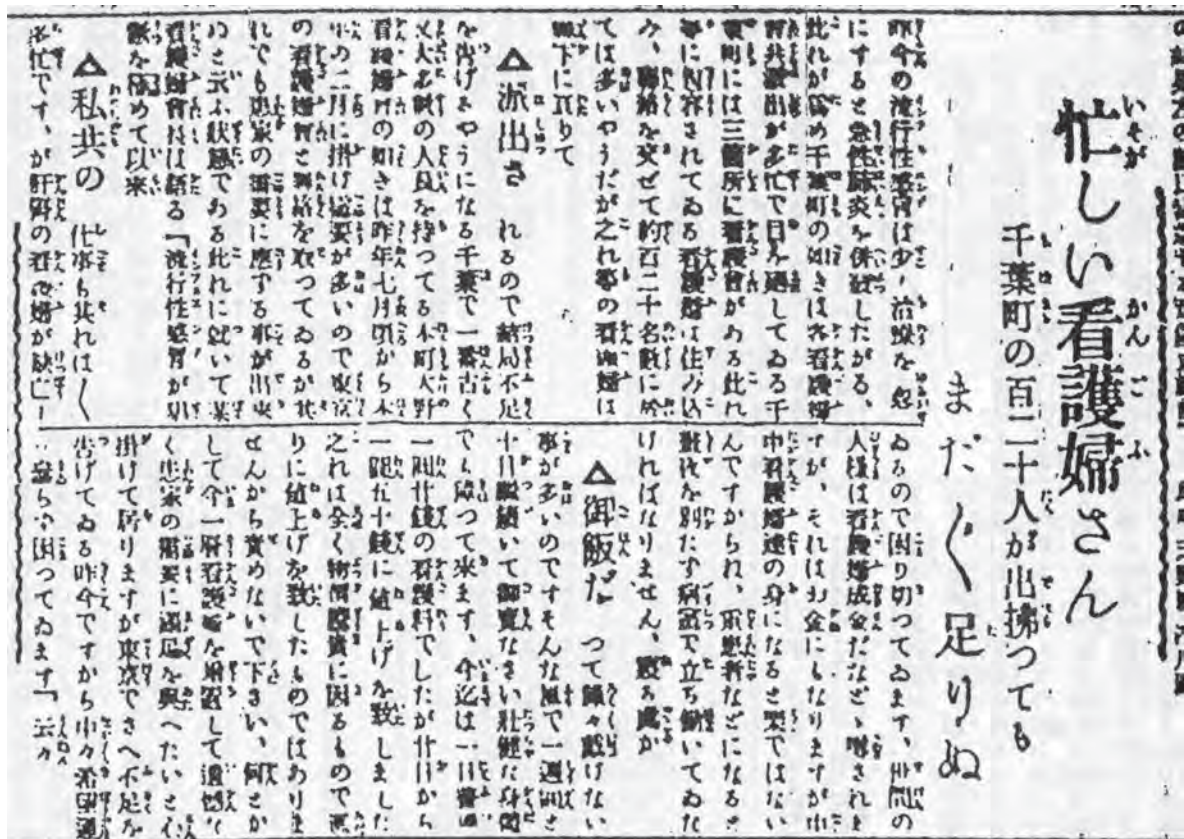 忙しい看護婦さん
千葉町の百二十人が出拂つても
まだ〱足りぬ
昨今の流行性感冒は少し治療を怠
にすると急性肺炎を併發したがる、
此れが爲め千葉町の如きは各看護婦
會共派出が多忙で目を廻してゐる千
葉町には三箇所に看護婦會がある此れ
等に内容されてゐる看護婦は住み込
み、聯絡を交ぜて約百二十名數に於
ては多いやうだが之れ等の看護婦は
縣下に亘りて
△派出さ れるので結局不足
を告げるやうになる千葉で一番古く
又大多數の人員を持つてる本町大野
看護婦會の如きは昨年七月頃から本
年の二月に掛け需要が多いので東京
の看護婦會と聯絡を取つてゐるが其
れでも患家の需要に應ずる事が出來
ぬと云ふ狀態である此れに就いて某
看護婦會長は語る「流行性感冒が猖
獗を極めて以來
△私共の 仕事も其れは〱
多忙です、が肝腎の看護婦が缺亡し
ゐるので困り切つてゐます、世間の
人樣は看護婦成金だなどゝ噂されま
すが、それはお金にもなりますが中
中看護婦達の身になると樂ではない
んですからね、重患者などになると
晝夜を別たず病室で立ち働いてゐな
ければなりません、寢る處か
△御飯だ つて錄々戴けない
事が多いのですそんな風で一週間と
十日間續いて御覽なさい壯健な身體
でも障つて來ます、今迄は一日普通
一圓廿錢の看護料でしたが廿日から
一圓五十錢に値上げを致しました
之れは全く物價騰貴に因るもので濫
りに値上げを致したものではありま
せんから責めないで下さい、何とか
して今一層看護婦を増置して遺憾な
く患家の需要に滿足を與へたいと心
掛けて居りますが東京でさへ不足を
告げてゐる昨今ですから中々希望通
り參らず困つてゐます」云々